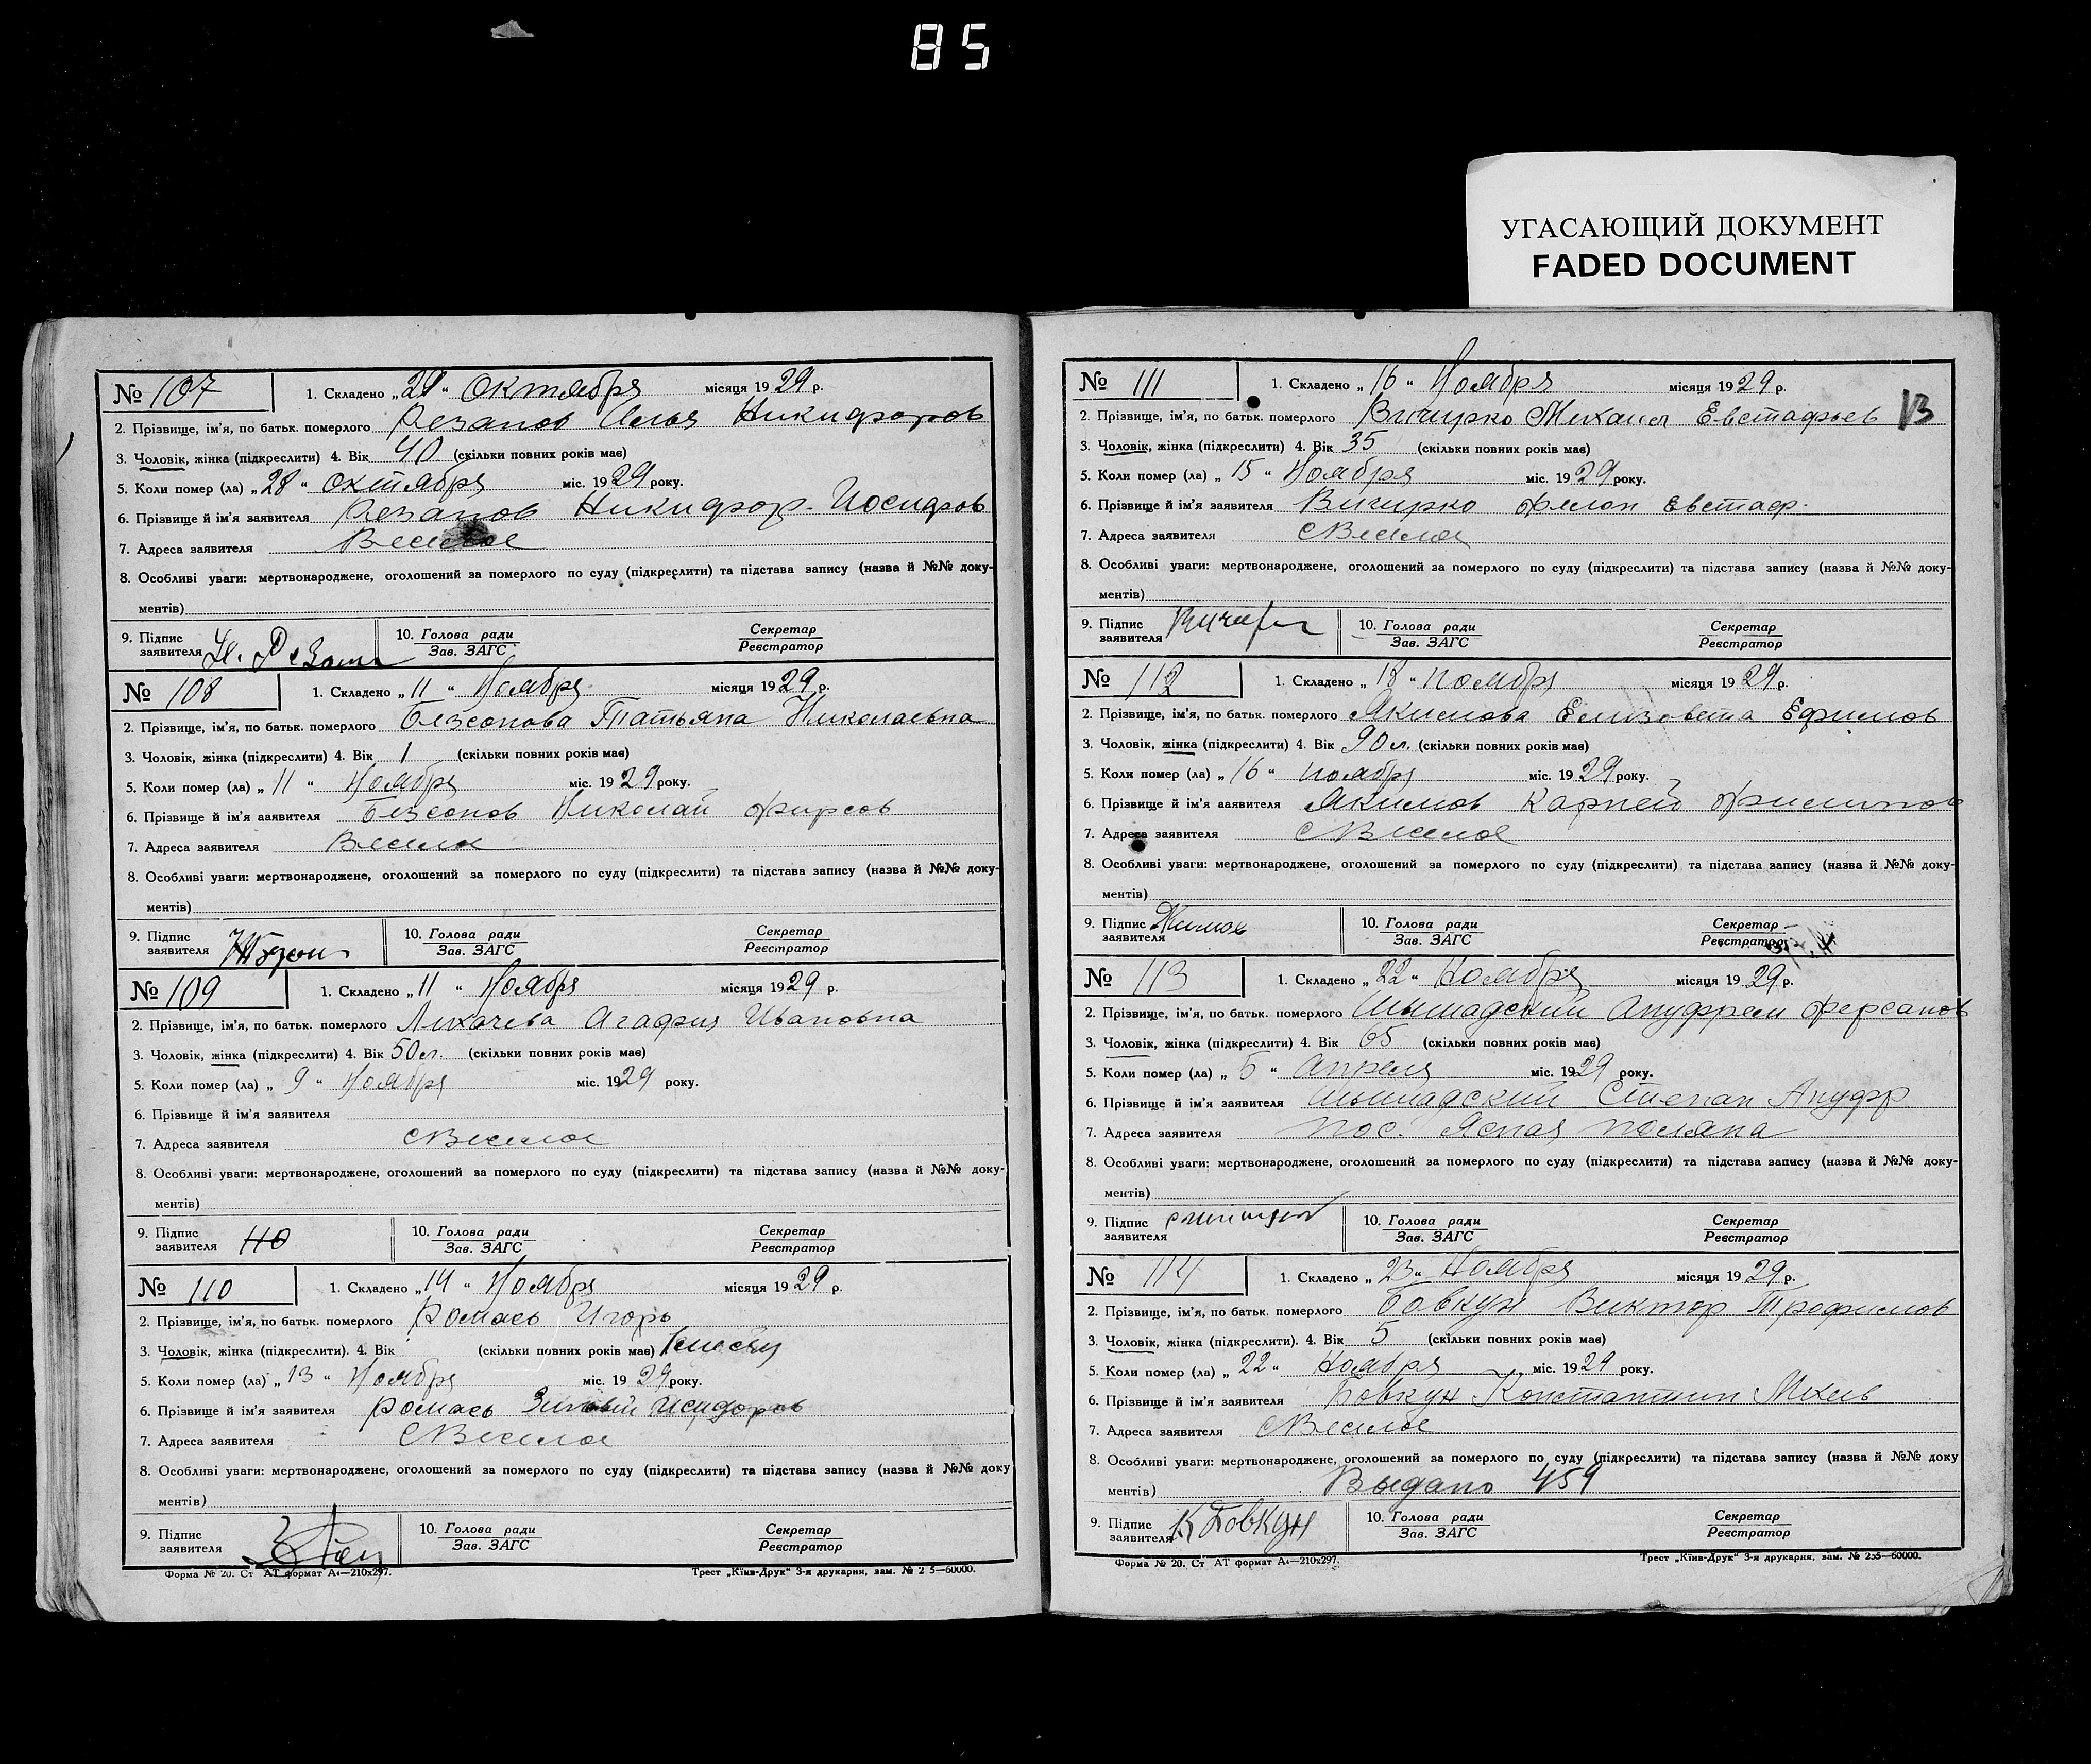 85
УГАСАЮЩИЙ ДОКУМЕНТ
FADED DOCUMENT
№ 107 1. Складено „29“ Октября місяця 1929 р.
2. Прізвище, ім'я, по батьк. померлого Резанов Илья Никифоров
3. Чоловік, жінка (підкреслити) 4. Вік 40 (скільки повних років має)
5. Коли помер (ла) „28“ октября міс. 1929 року.
6. Прізвище й ім'я заявителя Резанов Никифор Иосифов
7. Адреса заявителя Веселое
8. Особливі уваги: мертвонароджене, оголошений за померлого по суду (підкреслити) та підстава запису (назва й №№ доку-
ментів)
9. Підпис заявителя Н. Резан 10. Голова ради Зав. ЗАГС Секретар Реєстратор
№ 108 1. Складено „11“ Ноября місяця 1929 р.
2. Прізвище, ім'я, по батьк. померлого Безсонова Татьяна Николаевна
3. Чоловік, жінка (підкреслити) 4. Вік 1 (скільки повних років має)
5. Коли помер (ла) „11“ Ноября міс. 1929 року.
6. Прізвище й ім'я заявителя Безсонов Николай Фирсов
7. Адреса заявителя Веселое
8. Особливі уваги: мертвонароджене, оголошений за померлого по суду (підкреслити) та підстава запису (назва й №№ доку-
ментів)
9. Підпис заявителя 10. Голова ради Зав. ЗАГС Секретар Реєстратор
№ 109 1. Складено „11“ Ноября місяця 1929 р.
2. Прізвище, ім'я, по батьк. померлого Лихачева Агафия Ивановна
3. Чоловік, жінка (підкреслити) 4. Вік 50 л. (скільки повних років має)
5. Коли помер (ла) „9“ Ноября міс. 1929 року.
6. Прізвище й ім'я заявителя
7. Адреса заявителя с Веселое
8. Особливі уваги: мертвонароджене, оголошений за померлого по суду (підкреслити) та підстава запису (назва й №№ доку-
ментів)
9. Підпис заявителя 110 10. Голова ради Зав. ЗАГС Секретар Реєстратор
№ 110 1. Складено „14“ Ноября місяця 1929 р.
2. Прізвище, ім'я, по батьк. померлого Ромась Игорь
3. Чоловік, жінка (підкреслити). 4. Вік (скільки повних років має)
5. Коли помер (ла) „13“ Ноября міс. 1929 року.
6. Прізвище й ім'я заявителя Ромась Зиновий Исидоров
7. Адреса заявителя с Веселое
8. Особливі уваги: мертвонароджене, оголошений за померлого по суду (підкреслити) та підстава запису (назва й №№ доку
ментів)
9. Підпис заявителя 10. Голова ради Зав. ЗАГС Секретар Реєстратор
Форма № 20. Ст АТ формат А4—210х297. Трест „Київ-Друк“ 3-я друкарня, зам. № 2 5—60000.
№ 111 1. Складено „16“ Ноября місяця 1929 р.
2. Прізвище, ім'я, по батьк. померлого Вичирко Михаил Евстафьев 13
3. Чоловік, жінка (підкреслити) 4. Вік 35 (скільки повних років має)
5. Коли помер (ла) „15“ Ноября міс. 1929 року.
6. Прізвище й ім'я заявителя Вичирко Филон Евстаф.
7. Адреса заявителя с Веселое
8. Особливі уваги: мертвонароджене, оголошений за померлого по суду (підкреслити) та підстава запису (назва й №№ доку-
ментів)
9. Підпис заявителя 10. Голова ради Зав. ЗАГС Секретар Реєстратор
№ 112 1. Складено „18“ ноября місяця 1929 р.
2. Прізвище, ім'я, по батьк. померлого Якимова Елизовета Ефимов
3. Чоловік, жінка (підкреслити) 4. Вік 90 л. (скільки повних років має)
5. Коли помер (ла) „16“ ноября міс. 1929 року.
6. Прізвище й ім'я заявителя Якимов Карпей Филипов
7. Адреса заявителя с Веселое
8. Особливі уваги: мертвонароджене, оголошений за померлого по суду (підкреслити) та підстава запису (назва й №№ доку-
ментів)
9. Підпис заявителя 10. Голова ради Зав. ЗАГС Секретар Реєстратор
№ 113 1. Складено „22“ Ноября місяця 1929 р.
2. Прізвище, ім'я, по батьк. померлого
3. Чоловік, жінка (підкреслити) 4. Вік 65 (скільки повних років має)
5. Коли помер (ла) „5“ Апреля міс. 1929 року.
6. Прізвище й ім'я заявителя Степан Ануфр
7. Адреса заявителя пос. Ясная поляна
8. Особливі уваги: мертвонароджене, оголошений за померлого по суду (підкреслити) та підстава запису (назва й №№ доку-
ментів)
9. Підпис заявителя 10. Голова ради Зав. ЗАГС Секретар Реєстратор
№ 114 1. Складено „23“ Ноября місяця 1929 р.
2. Прізвище, ім'я, по батьк. померлого Бовкун Виктор Трофимов
3. Чоловік, жінка (підкреслити). 4. Вік 5 (скільки повних років має)
5. Коли помер (ла) „22“ Ноября міс. 1929 року.
6. Прізвище й ім'я заявителя Бовкун Константин
7. Адреса заявителя с Веселое
8. Особливі уваги: мертвонароджене, оголошений за померлого по суду (підкреслити) та підстава запису (назва й №№ доку
ментів) Выдано 459
9. Підпис заявителя К Бовкун 10. Голова ради Зав. ЗАГС Секретар Реєстратор
Форма № 20. Ст АТ формат А4—210х297. Трест „Київ-Друк“ 3-я друкарня, зам. № 235—60000.